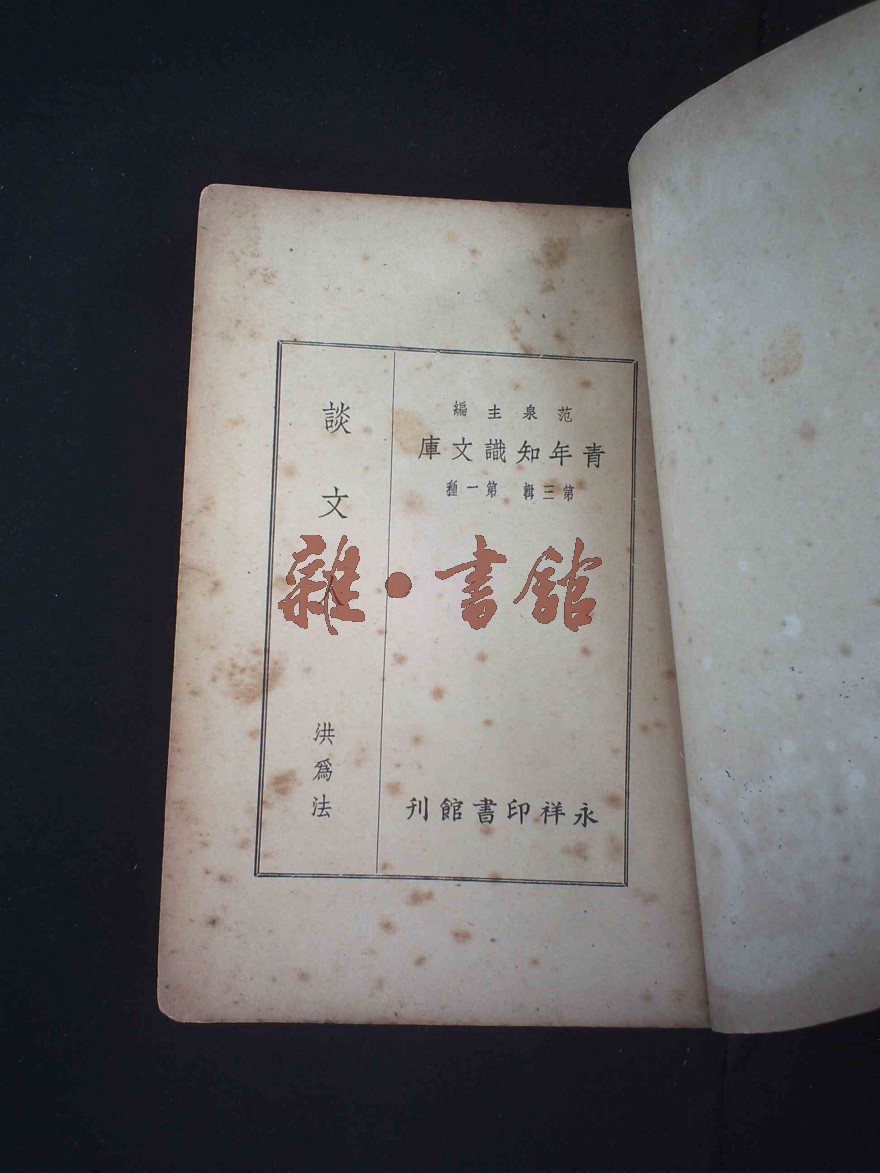 范泉主編
青年知識文庫
第三輯 第一種
永祥印書館刊
談文人
洪爲法
雜·書館